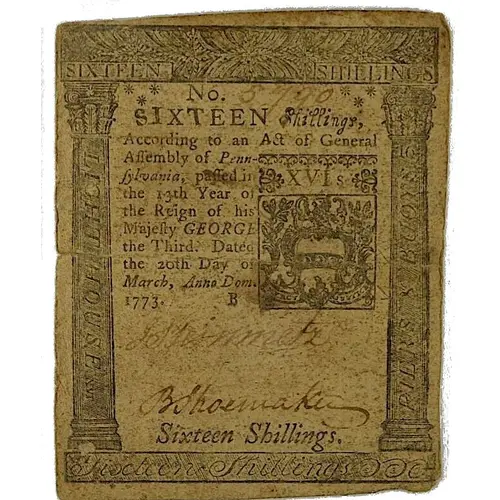 SIXTEEN SHILLINGS
No.
SIXTEEN ſhillings,
According to an Act of General
Aſſembly of Penn-
ſylvania, paſſed in
the 13th Year of
the Reign of his
Majeſty GEORGE
the Third. Dated
the 20th Day of
March, Anno Dom.
1773. B
XVIs
LIGHT HOUSE
PIERS & BUOYS
B Shoemaker
Sixteen Shillings.
Sixteen Shillings